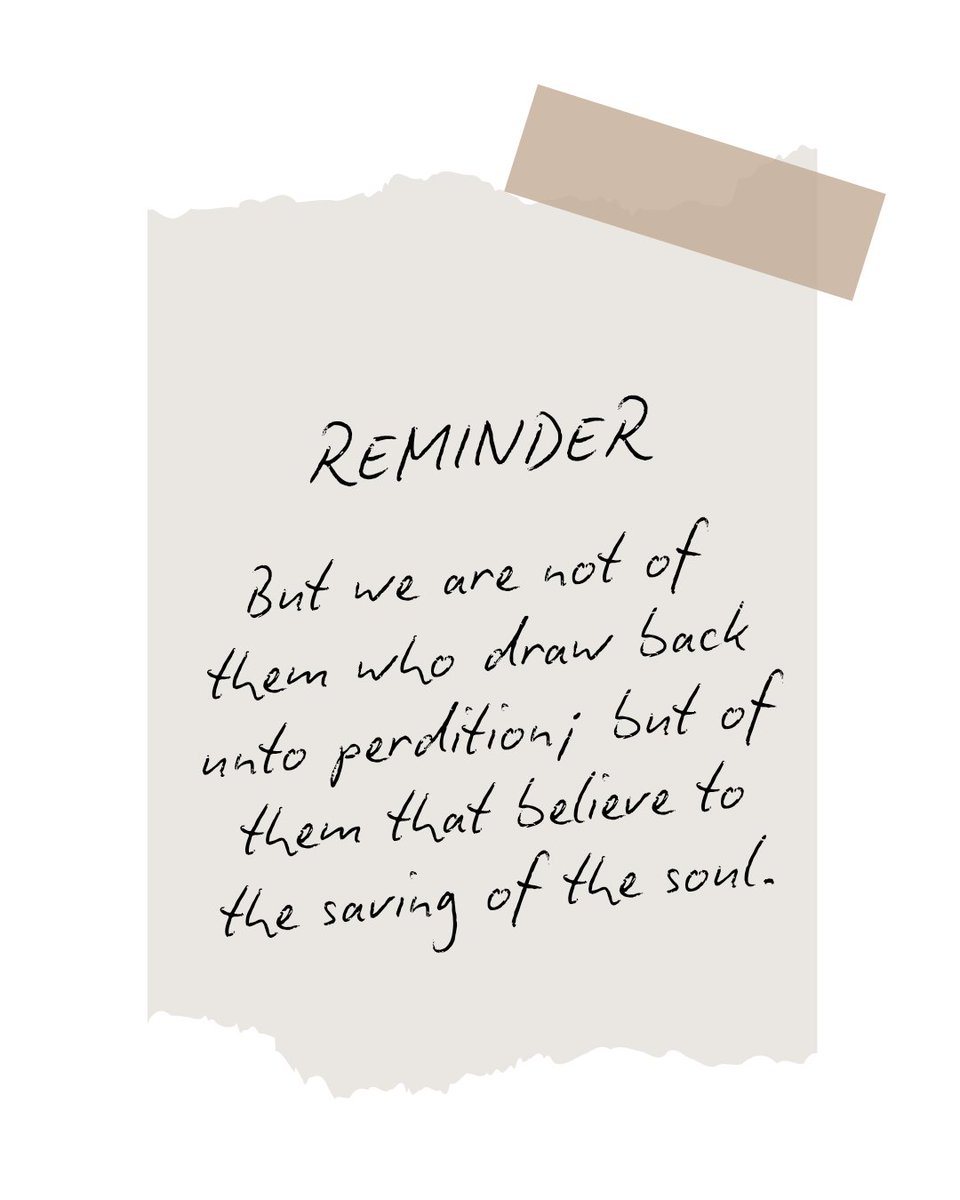 REMINDER
But we are not of
them who draw back
unto perdition; but of
them that believe to
the saving of the soul.